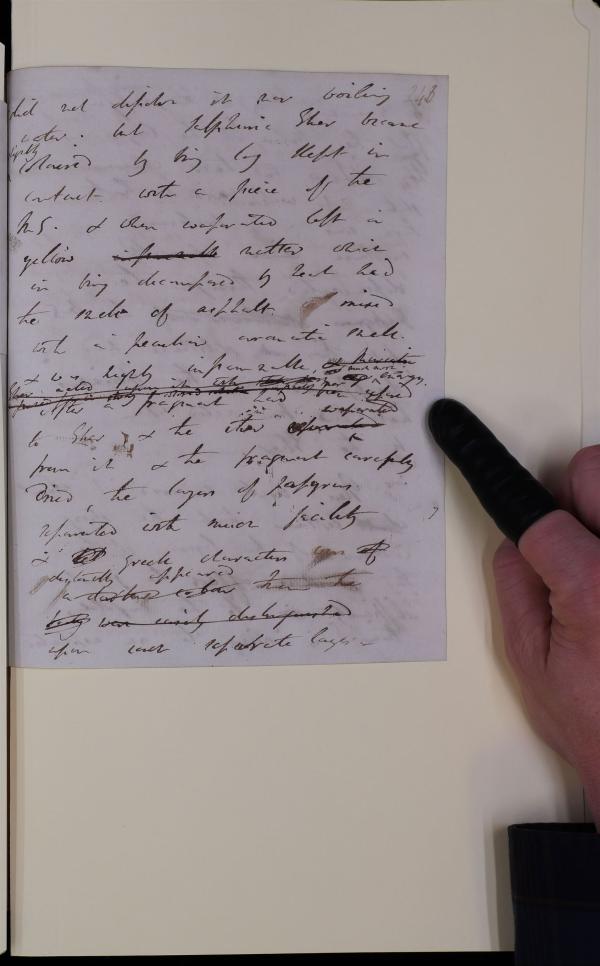 248
did not dissolve it nor boiling
water. but sulphuric Ether became
slightly
coloured by being long kept in
contact with a piece of the
M.S. & when evaporated left a
yellow inflammable matter which
in being decomposed by heat had
the smell of asphalt mixed
with a peculiar aromatic smell.
& was highly inflammable,
After a fragment had been exposed
evaporated
to Ether & the ether
from it & the fragment carefully
dried, the layers of papyrus
separated with much facility
& Greek characters
distinctly appeared
a darker colour than the
were easily distinguished
upon each separate layer